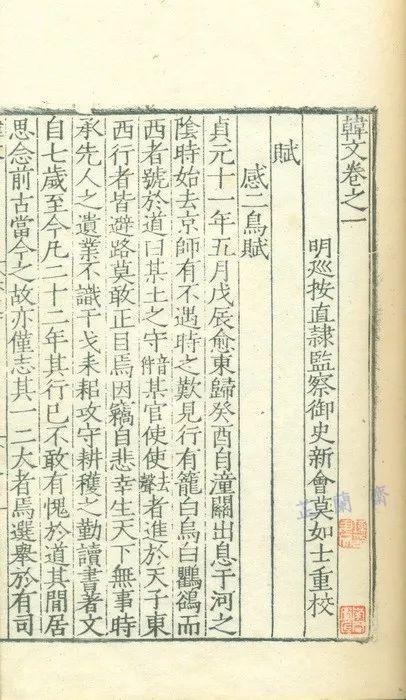 韓文卷之一
明廵按直隷監察御史新會莫如士重校
賦
感二鳥賦
貞元十一年五月戊辰愈東歸癸酉自潼關出息于河之
陰時始去京師有不遇時之歎見行有籠白烏白鸜鵒而
西者號於道曰某土之守音狩某官使使去聲者進於天子東
西行者皆避路莫敢正目焉因竊自悲幸生天下無事時
承先人之遺業不識干戈耒耜攻守耕穫之勤讀書著文
自七歲至今凡二十二年其行已不敢有愧於道其閒居
思念前古當今之故亦僅志其一二大者焉選舉於有司
芷蘭齋